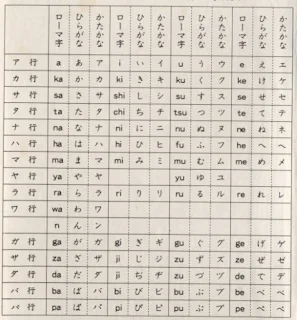 ローマ字 ひらがな かたかな ローマ字 ひらがな かたかな ローマ字 ひらがな かたかな ローマ字 ひらがな かたかな
ア 行 a あ ア i い イ u う ウ e え エ
カ 行 ka か カ ki き キ ku く ク ke け ケ
サ 行 sa さ サ shi し シ su す ス se せ セ
タ 行 ta た タ chi ち チ tsu つ ツ te て テ
ナ 行 na な ナ ni に ニ nu ぬ ヌ ne ね ネ
ハ 行 ha は ハ hi ひ ヒ fu ふ フ he へ ヘ
マ 行 ma ま マ mi み ミ mu む ム me め メ
ヤ 行 ya や ヤ yu ゆ ユ
ラ 行 ra ら ラ ri り リ ru る ル re れ レ
ワ 行 wa わ ワ
n ん ン
ガ 行 ga が ガ gi ぎ ギ gu ぐ グ ge げ ゲ
ザ 行 za ざ ザ ji じ ジ zu ず ズ ze ぜ ゼ
ダ 行 da だ ダ ji ぢ ヂ zu づ ヅ de で デ
バ 行 ba ば バ bi び ビ bu ぶ ブ be べ ベ
パ 行 pa ぱ パ pi ぴ ピ pu ぷ プ pe ぺ ペ